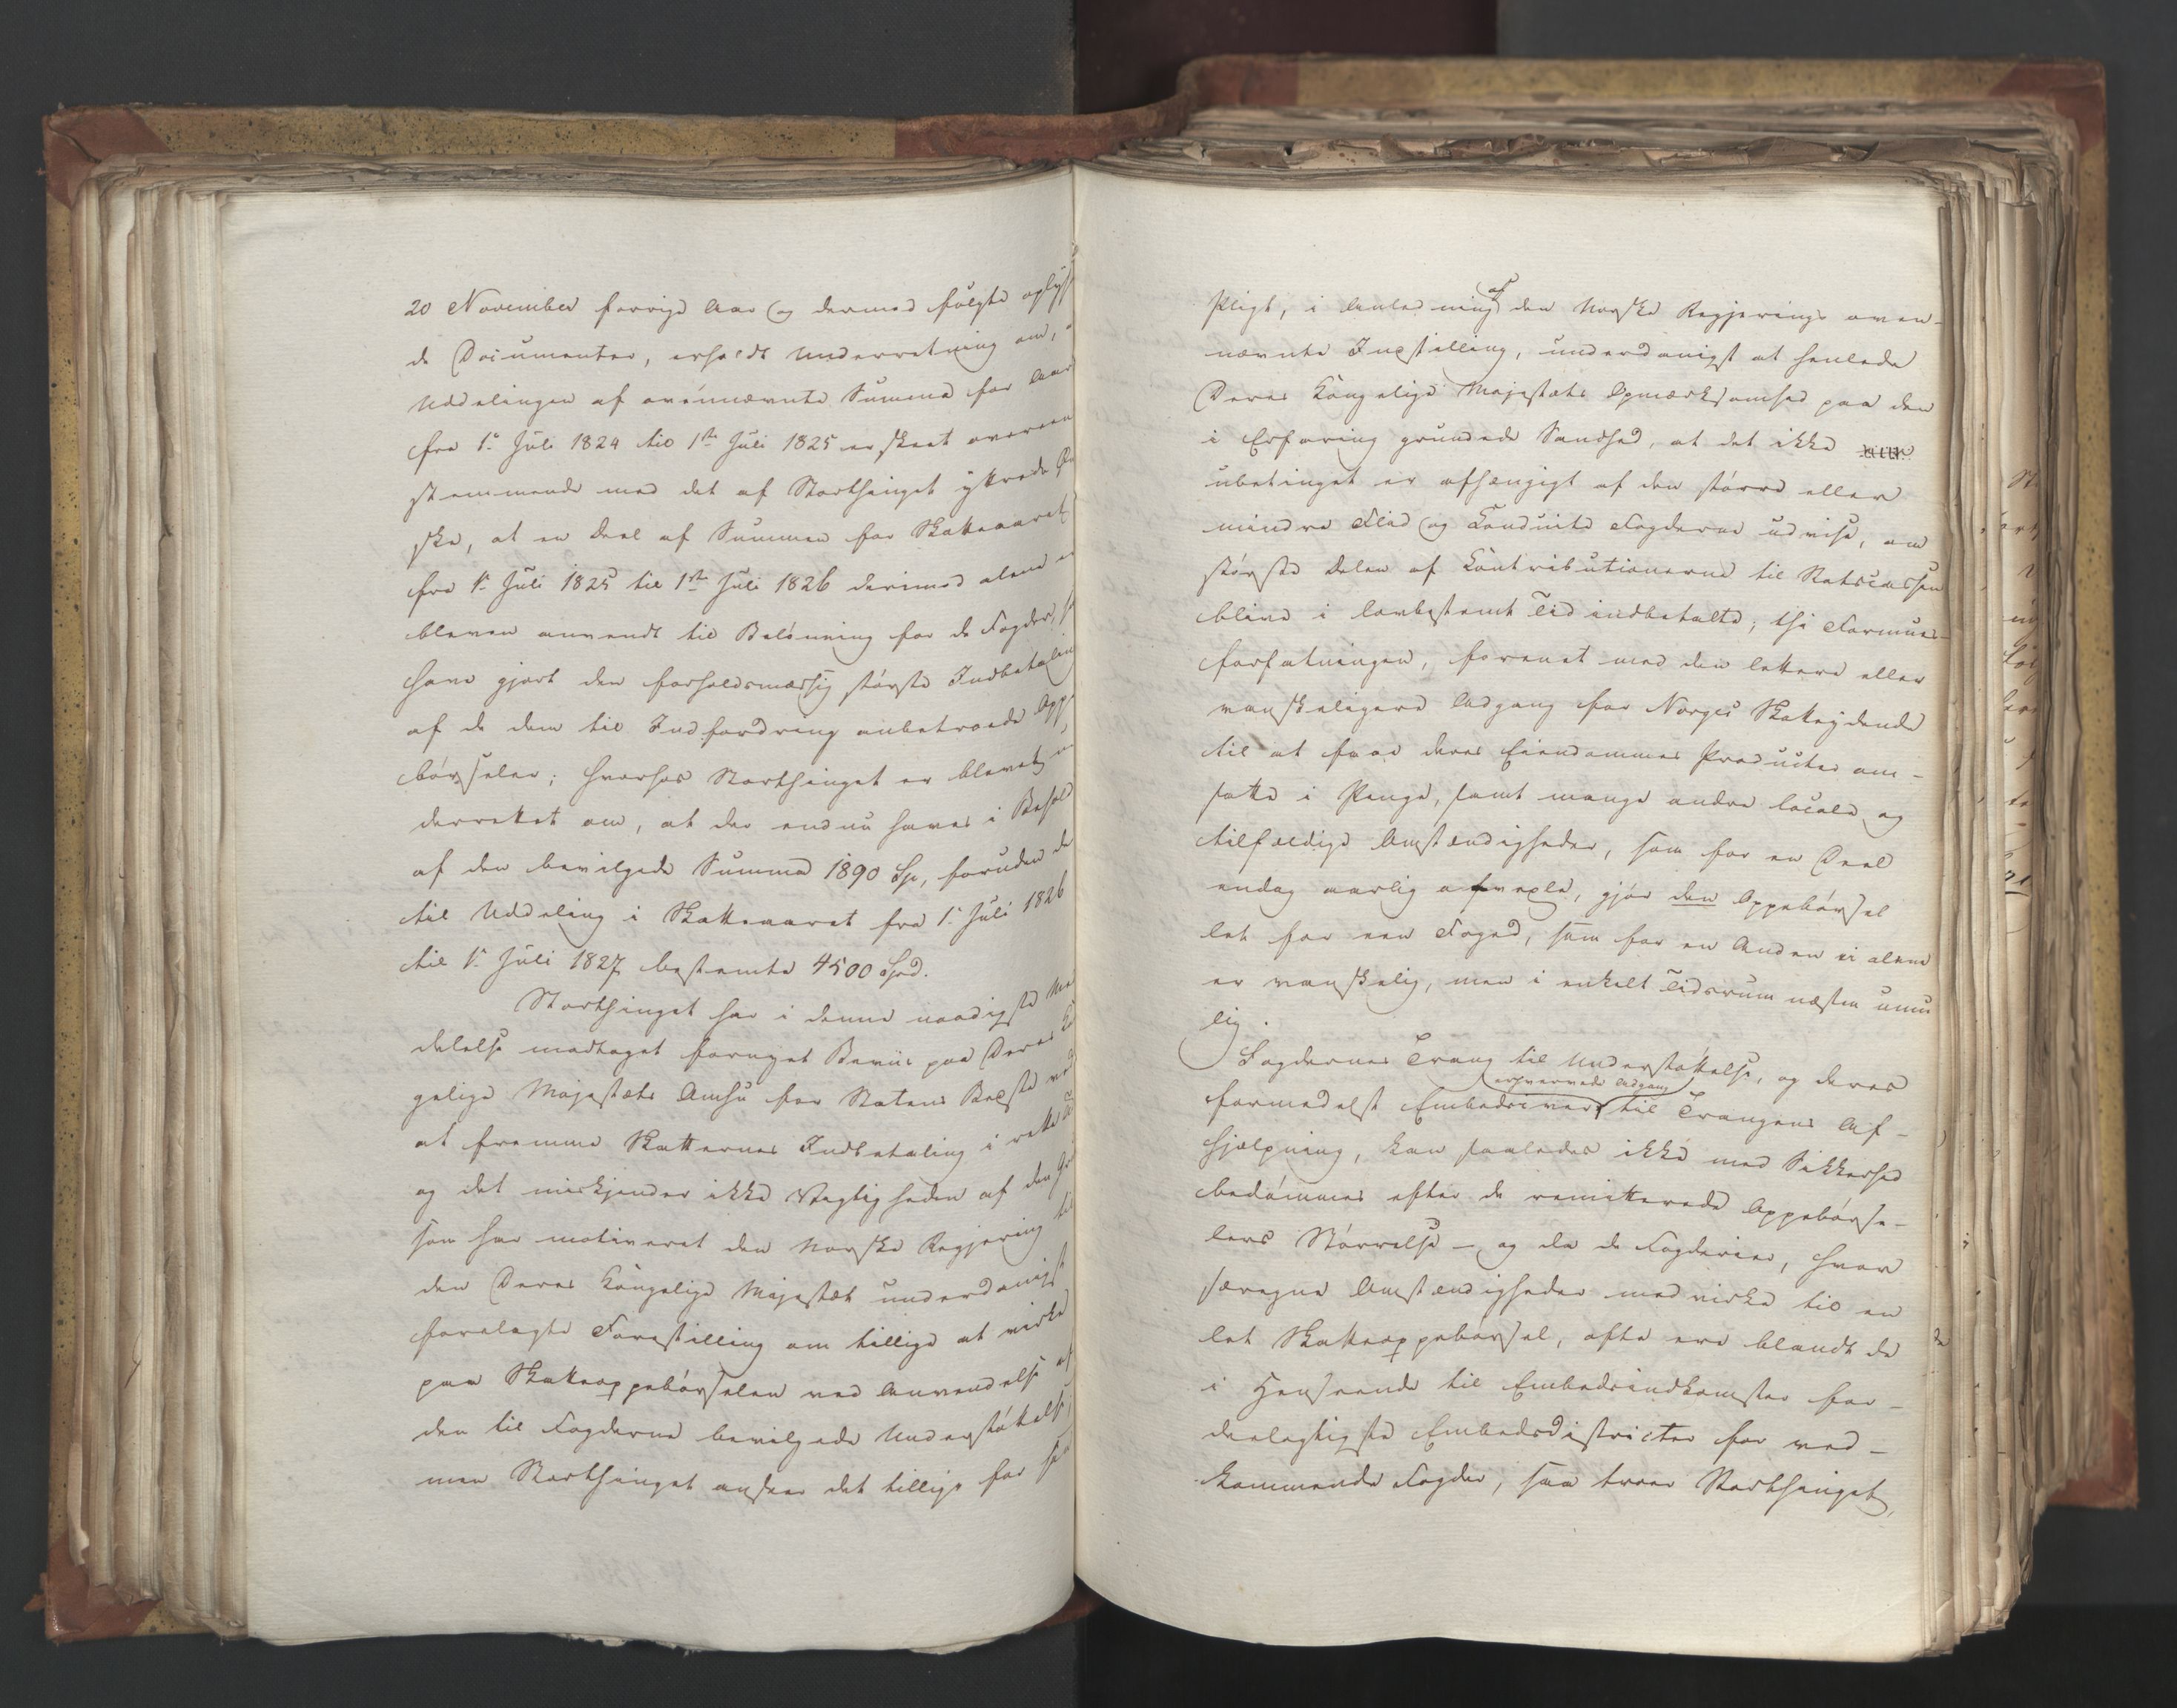 20 November forrige Aar og dermed fulgte oplys
de Documenter, erholdt Underretning om,
Uddelingen af ovennævnte Summa for Aar
fra 1e Juli 1824 til 1ste Juli 1825 er skeet overeen
stemmende med det af Storthinget yttrede Øn
ske, at en Deel af Summen for Skatteaaret
fra 1e Juli 1825 til 1ste Juli 1826 derimod alene er
bleven anvendt til Belønning for de Fogder,
have gjort den forholdsmæssig største Indbetaling
af de dem til Indfordring anbetroede Oppe
børseler; hvorhos Storthinget er blevet un
derrettet om, at der endnu haves i Behold
af den bevilgede Summa 1890 Sp, foruden de
til Uddeling i Skatteaaret fra 1e Juli 1826
til 1e Juli 1827 bestemte 4500 Spd.
Storthinget har i denne naadigste Med
delelse modtaget fornyet Beviis paa Deres Kon
gelige Majestæts Omhu for Statens Bedste ved
at fremme Skatternes Indbetaling i rette Tid
og det miskjender ikke Vægtigheden af den Grund
som har motiveret den Norske Regjering til
den Deres Kongelige Majestæt underdanigst
forelagte Forestilling om tillige at virke
paa Skatteoppebørselen ved Anvendelse af
den til Fogderne bevilgede Understøttelse,
men Storthinget ansseer det tillige for sin
Pligt, i Anledning af den Norske Regjerings oven-
nævnte Indstilling, underdanigst at henlede
Deres Kongelige Majestæts Opmærksomhed paa den
i Erfaring grundede Sandhed, at det ikke
ubetinget er afhængigt af den større eller
mindre Flid og Conduite Fogderne udvise, om
største Delen af Contributionerne til Statscassen
blive i lovbestemt Tid indbetalte; thi Formues-
forfatningen, forenet med den lettere eller
vanskeligere Adgang for Norges Skatteydende
til at faae deres Eiendommes Producter om-
satte i Penge, samt mange andre locale og
tilfældige Omstændigheder, som for en Deel
endog aarlig afvexle, gjør den Oppebørsel
let for een Foged, som for en Anden ei alene
er vanskelig, men i enkelt Tidsrum næsten umu
lig.
Fogdernes Trang til Understøttelse, og deres
formedelst Embedsiver erhvervede Adgang til Trangens Af-
hjelpning, kan saaledes ikke med Sikkerhed
bedømmes efter de remitterede Oppebørse-
lers Størrelse - og da de Fogderier, hvor
særegne Omstændigheder medvirke til en
let Skatteoppebørsel, ofte ere blandt de
i Henseende til Embedsindkomster for-
deelagtigste Embedsdistricter for ved-
kommende Fogder, saa troer Storthinget,